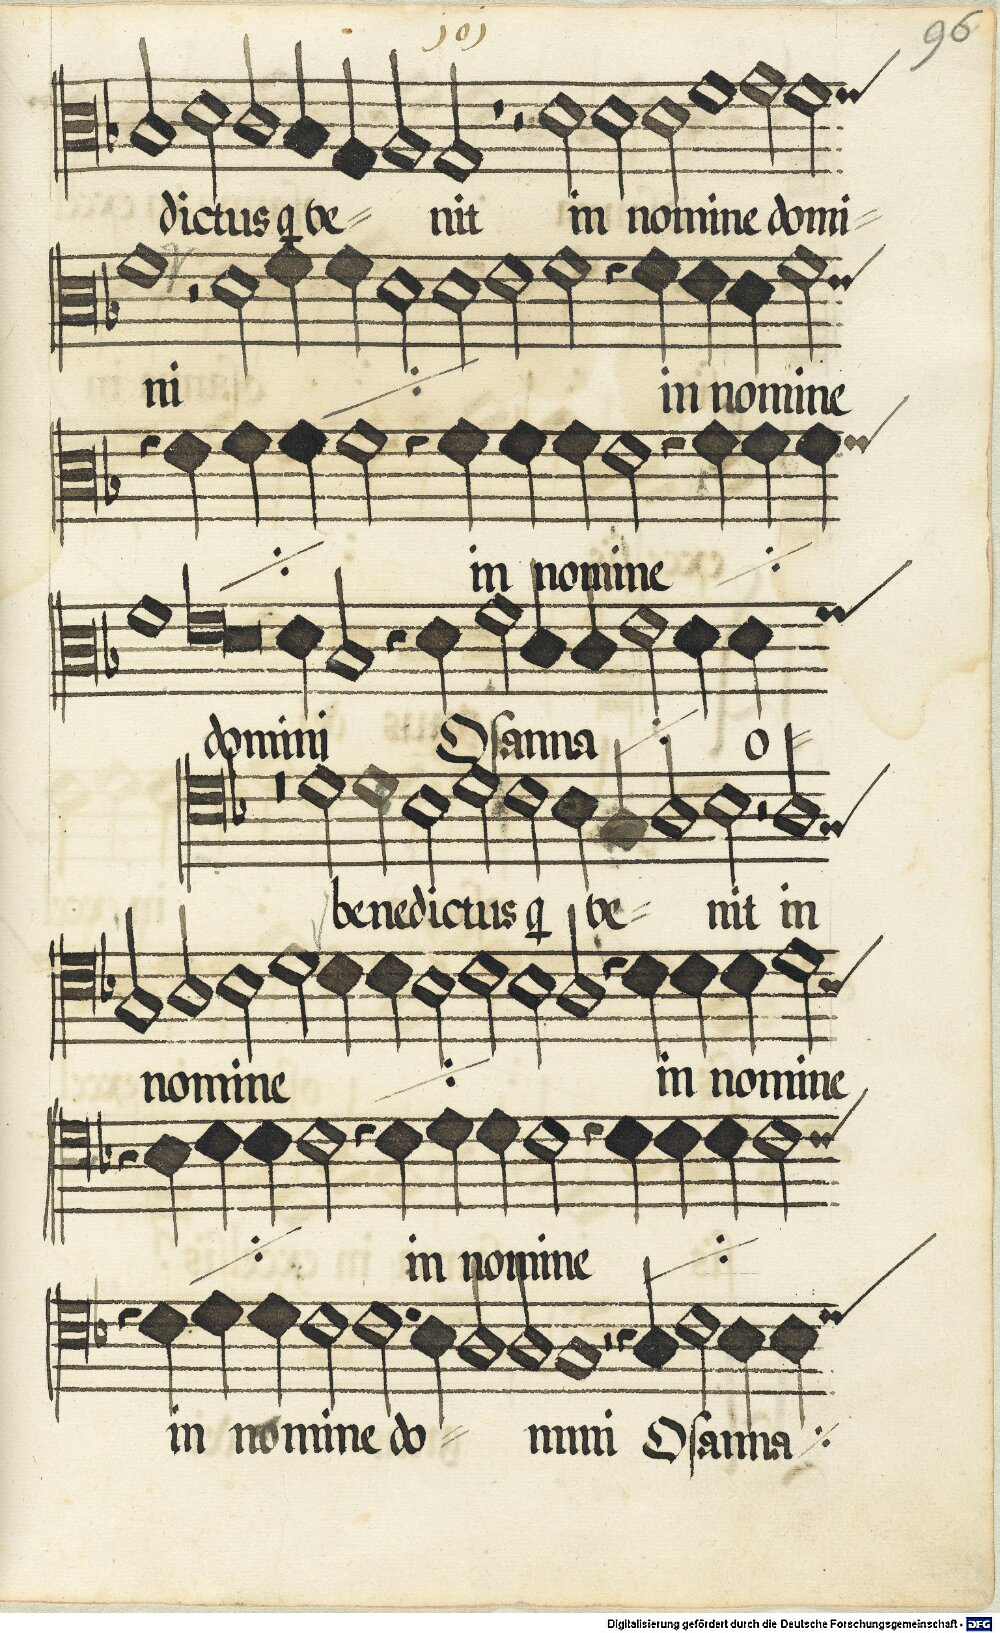 101
96
dictus q ve= nit in nomine domi=
ni ⁒ in nomine
⁒ in nomine ⁒
domini Osanna ⁒ o=
benedictus q ve= nit in
nomine ⁒ in nomine
⁒ in nomine ⁒
in nomine do= mini Osanna ⁒
Digitalisierung gefördert durch die Deutsche Forschungsgemeinschaft - DFG